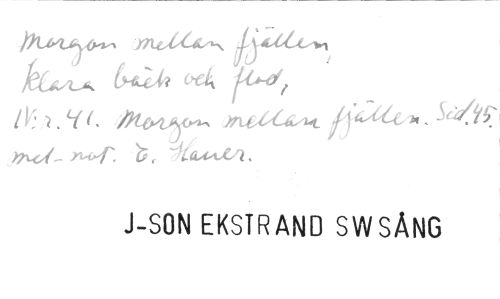 Morgon mellan fjällen,
klara bäck och flod,
N:r. 41. Morgon mellan fjällen. Sid. 45.
mel-not. E. Hauer.
J-SON EKSTRAND SWSÅNG